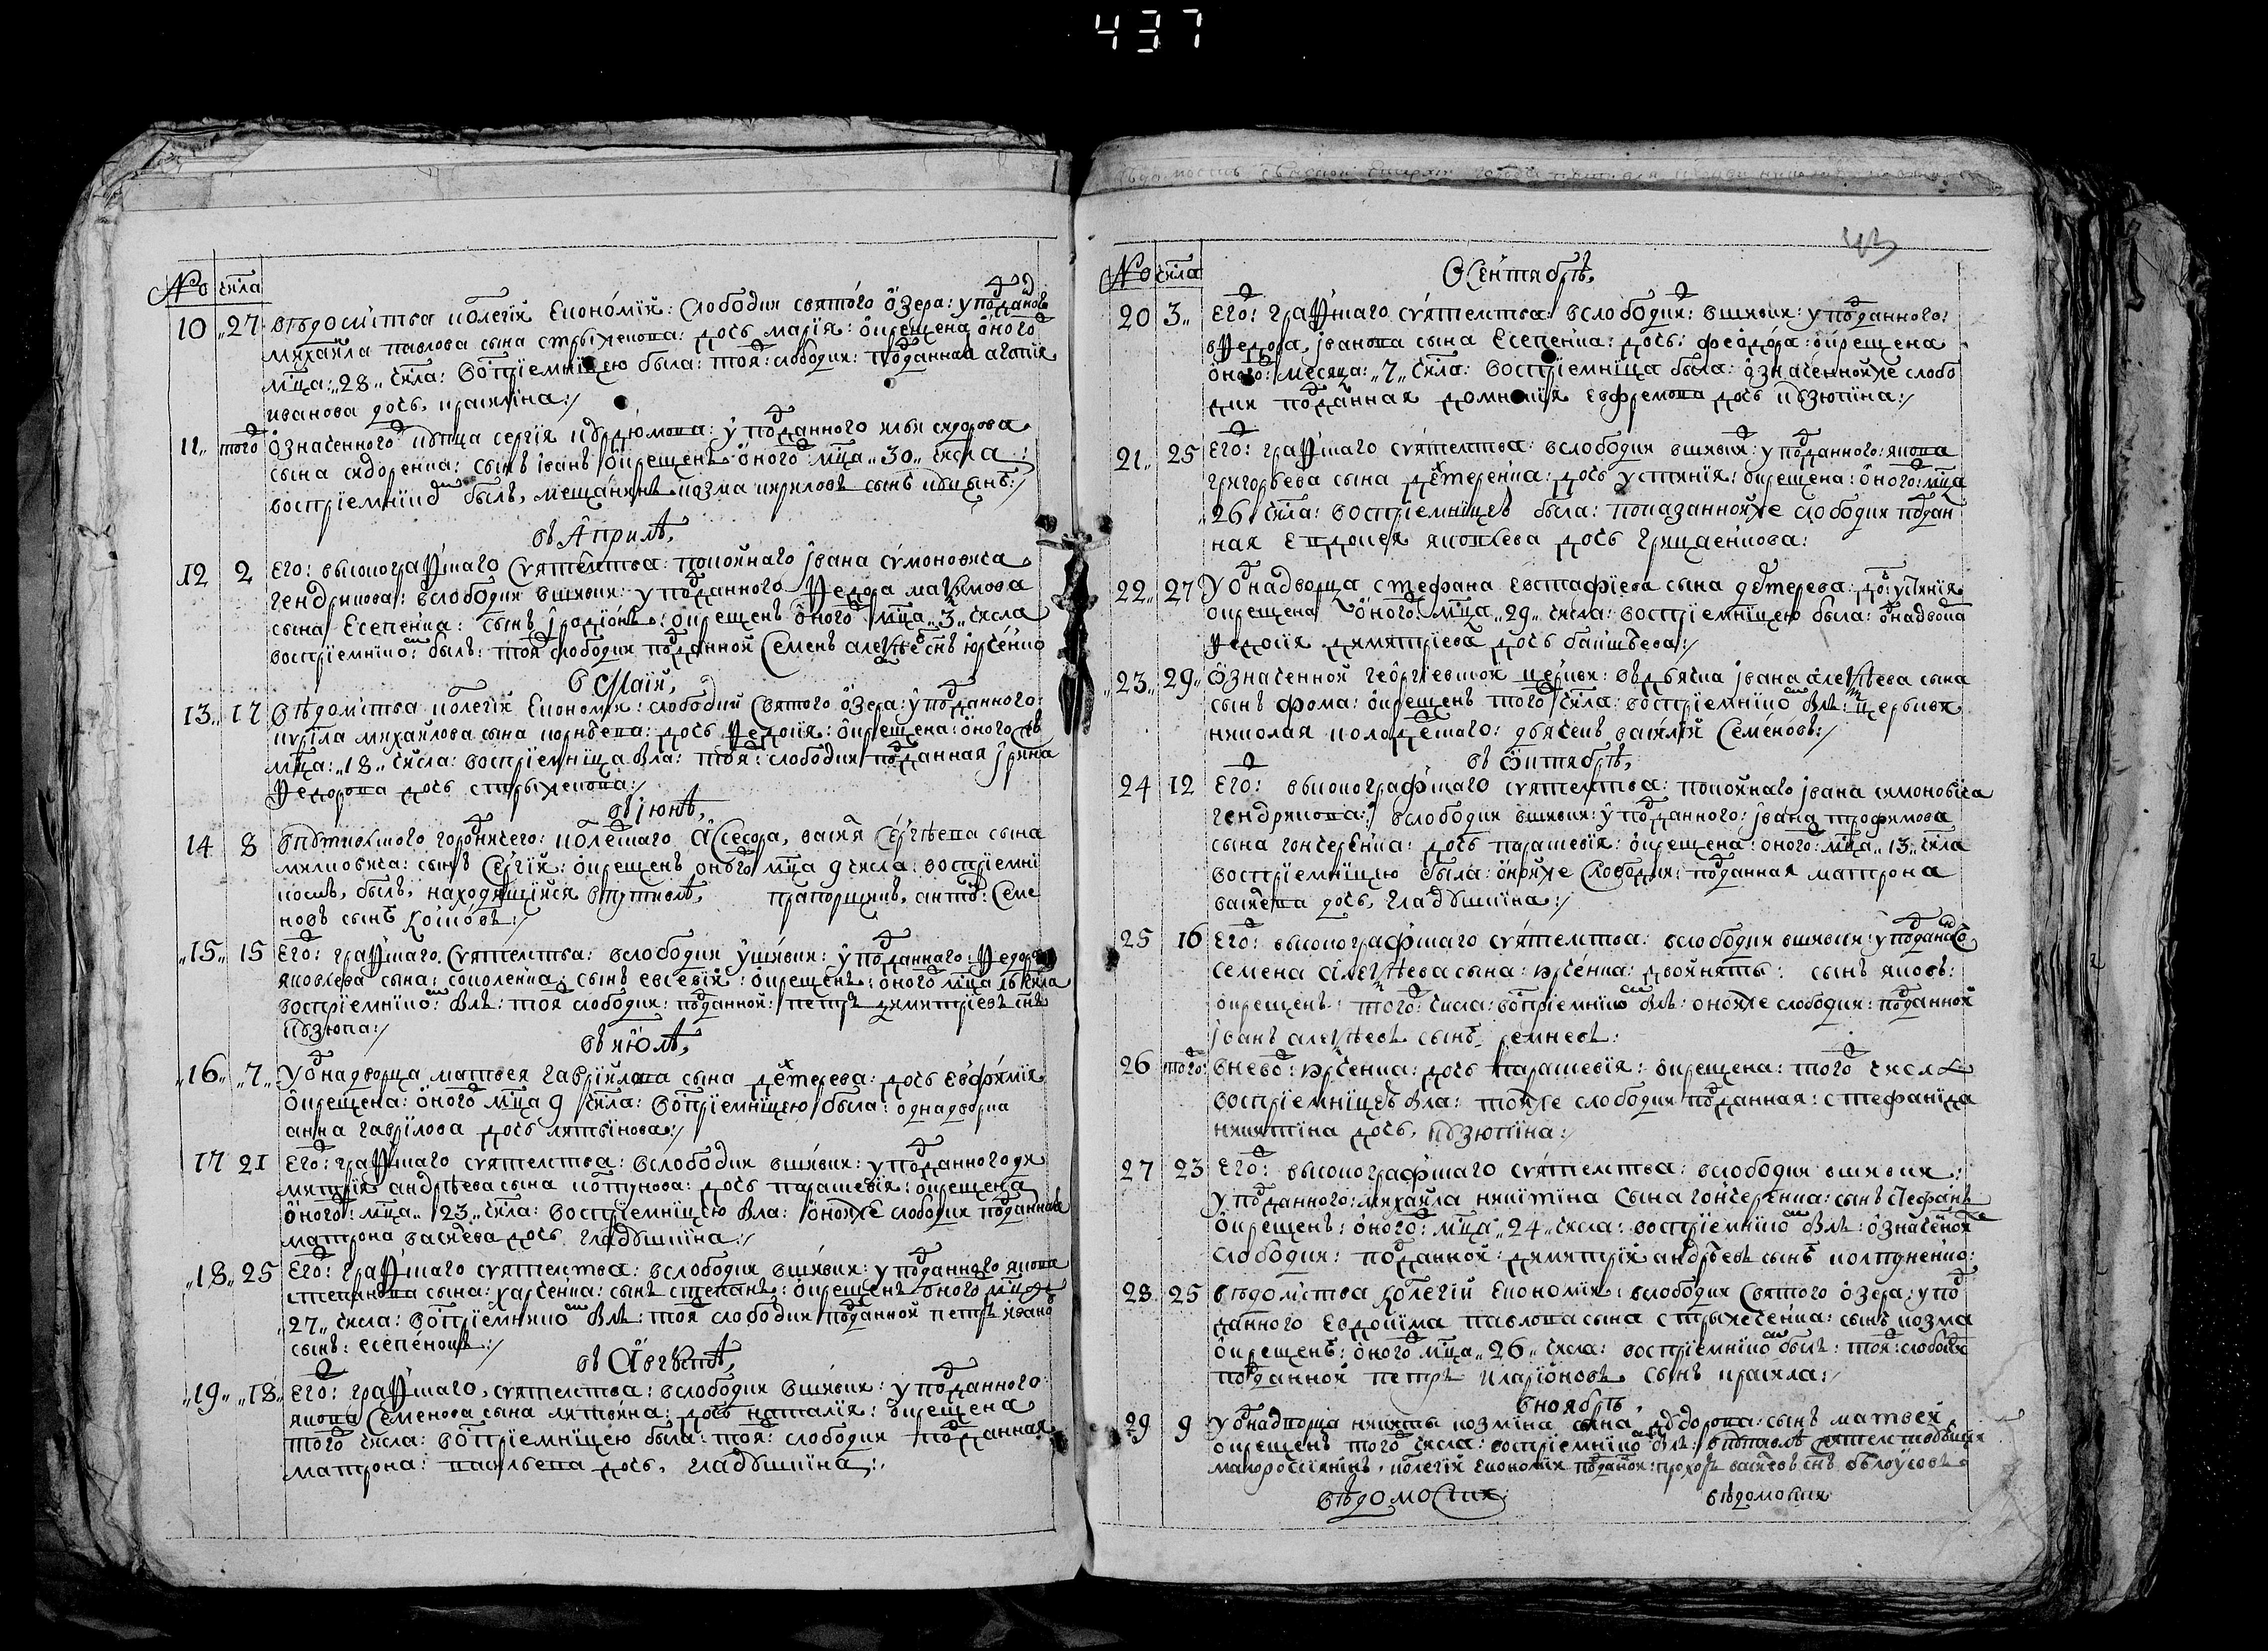 437
No числа
10 27 вѣдомства колегiи економiи: слободки святого озера: у подданого
михаила павлова сына стрыжекова: дочь марiя: окрещена оного
мца: 28 числа: востприемницею была: тоя: слободки: подданная агапiя
иванова дочь, красилина:/
11 того означенного купца сергiя курдюмова: у подданного ильи сидорова
сына сидоренка: сынъ iванъ окрещенъ оного мца 30 числа:
воспрiемникомъ былъ, мещанинъ козма кириловъ сынъ
въ Априлѣ,
12 2 его: высокографскаго сиятелства: покойнаго iвана симоновича
гендрикова: вслободки вшивки: у подданного федора маѯимова
сына есепенка: сынъ iродiонъ: окрещенъ оного мца 3 числа
воспрiемникомъ: былъ: тоя слободки подданной семенъ алеѯѣевъ снъ юрченко
в Маiи,
13 17 вѣдомства колегiи економiи: слободки святого озера: у подданного
кирiла михайлова сына корнѣева: дочь федосiя: окрещена: оного
мца: 18 числа: воспрiемница была: тоя: слободки подданная iрина
федорова дочь стрыжекова:/
въ iюнѣ,
14 8 впутивлского городничего: колежского ассесора, василя сергѣева сына
миликовича: сынъ сергiй: окрещенъ оного мца 9 числа: воспрiемни
комъ, былъ, находящiйся впутивлѣ, прапорщикъ, антонъ: семе
новъ сынъ
15 15 его: графскаго сиятелства: вслободки ушивки: у подданного: федора
яковлева сына: соколенка: сынъ евсевiй: окрещенъ: оного мца числа
воспрiемникомъ: былъ: тоя слободки: подданной: петръ димитрiевъ снъ
кузюпа:/
въ июлѣ,
16 7 У однадворца матвея гаврiилова сына дехтерева: дочь евфимiя
окрещена: оного мца 9 числа: востприемницею была: однадворка
анна гаврiлова дочь литвiнова:/
17 21 его: графскаго сиятелства: вслободки вшивки: у подданного ди
митрiя андрѣева сына колтунова: дочь парашевiя: окрещена
оного: мца 23 числа: воспрiемницею была: оной же слободки подданная
матрона васиева дочь гладушкiна:/
18 25 его: графскаго сиятелства: вслободки вшивки: у подданного якова
степанова сына: харченка: сынъ степанъ: окрещенъ оного мца
27 числа: воспрiемникомъ былъ: тоя слободки подданной петръ ивановъ
сынъ: есепенокъ:/
въ Августѣ,
19 18 его: графскаго, сиятелства: вслободки вшивки: у подданного
якова семенова сына литвина: дочь наталiя: окрещена
того числа: воспрiемницею была: тоя: слободки подданная
матрона: васильева дочь, гладушкiна:
43
No числа
В Сентябрѣ,
20 3 его: графскаго сиятелства: вслободки: вшивки: у подданного:
федора iванова сына есепенка: дочь: феодора: окрещена
оного: месяца: 7 числа: воспрiемнiца была: означеннойже слобо
дки подданная домнiкiя евфремова дочь кузюпiна:/
21 25 его: графскаго сиятелства: вслободки вшивки: у подданного: якова
григорьева сына дехтеренка: дочь устинiя: окрещена: оного: мца
26 числа: воспрiемницею была: показаннойже слободки поддан
ная евдокея яковлева дочь грищенкова:
22 27 У однадворца стефана евстафiева сына дегтерева: дочь: устинiя
окрещена оного мца 29 числа: воспрiемницею была: однадворка
федосiя димитрiева дочь
23 29 означенной георгiевской церкви: въ дьячка iвана алеѯѣева сына
сынъ фома: окрещенъ того числа: воспрiемникомъ былъ: церкви
николая колодежскаго: дьячекъ василiй семеновъ:/
въ Октябрѣ,
24 12 его: высокографскаго сиятелства: покойнаго iвана симоновича
гендрикова:/ вслободки вшивки: у подданного: iвана трофимова
сына гончеренка: дочь парашевiя: окрещена: оного: мца 13 числа
воспрiемницею была: онойже слободки: подданная матрона
васиева дочь, гладушкiна:/
25 16 его: высокографскаго сиятелства: вслободки вшивки: у подданного
семена алеѯѣева сына: юрченка: двойняты: сынъ яковъ:
окрещенъ: того: числа: воспрiемникомъ былъ: онойже слободки: подданной
iванъ алеѯѣевъ сынъ ремневъ:
26 того внево: юрченка: дочь парашевiя: окрещена: того числа
воспрiемницею была: тойже слободки подданная: стефанiда
никитина дочь, кузюпiна:/
27 23 его: высокографскаго сиятелства: вслободки вшивки:
у подданного: михайла никiтiна сына гончеренка: сынъ стефанъ
окрещенъ: оного: мца 24 числа: воспрiемникомъ былъ: означеной же
слободки: подданной: димитрiй андрѣевъ сынъ колтуненко:
28 25 вѣдомства колегiи економiи: вслободки святого озера: у под
данного евдокiма павлова сына стрыжеченка: сынъ козма
окрещенъ: оного мца 26 числа: воспрiемникомъ былъ: тоя: слободки
подданной петръ иларiоновъ сынъ красила:/
в ноябрѣ,
29 9 У однадворца никиты козмiна сына дудорова: сынъ матвей
окрещенъ того числа: воспрiемникомъ былъ: впутивлѣ
малоросiянинъ, колегiи економiи подданой: прохоръ васиевъ снъ бѣлоусовъ
вѣдомости вѣдомости